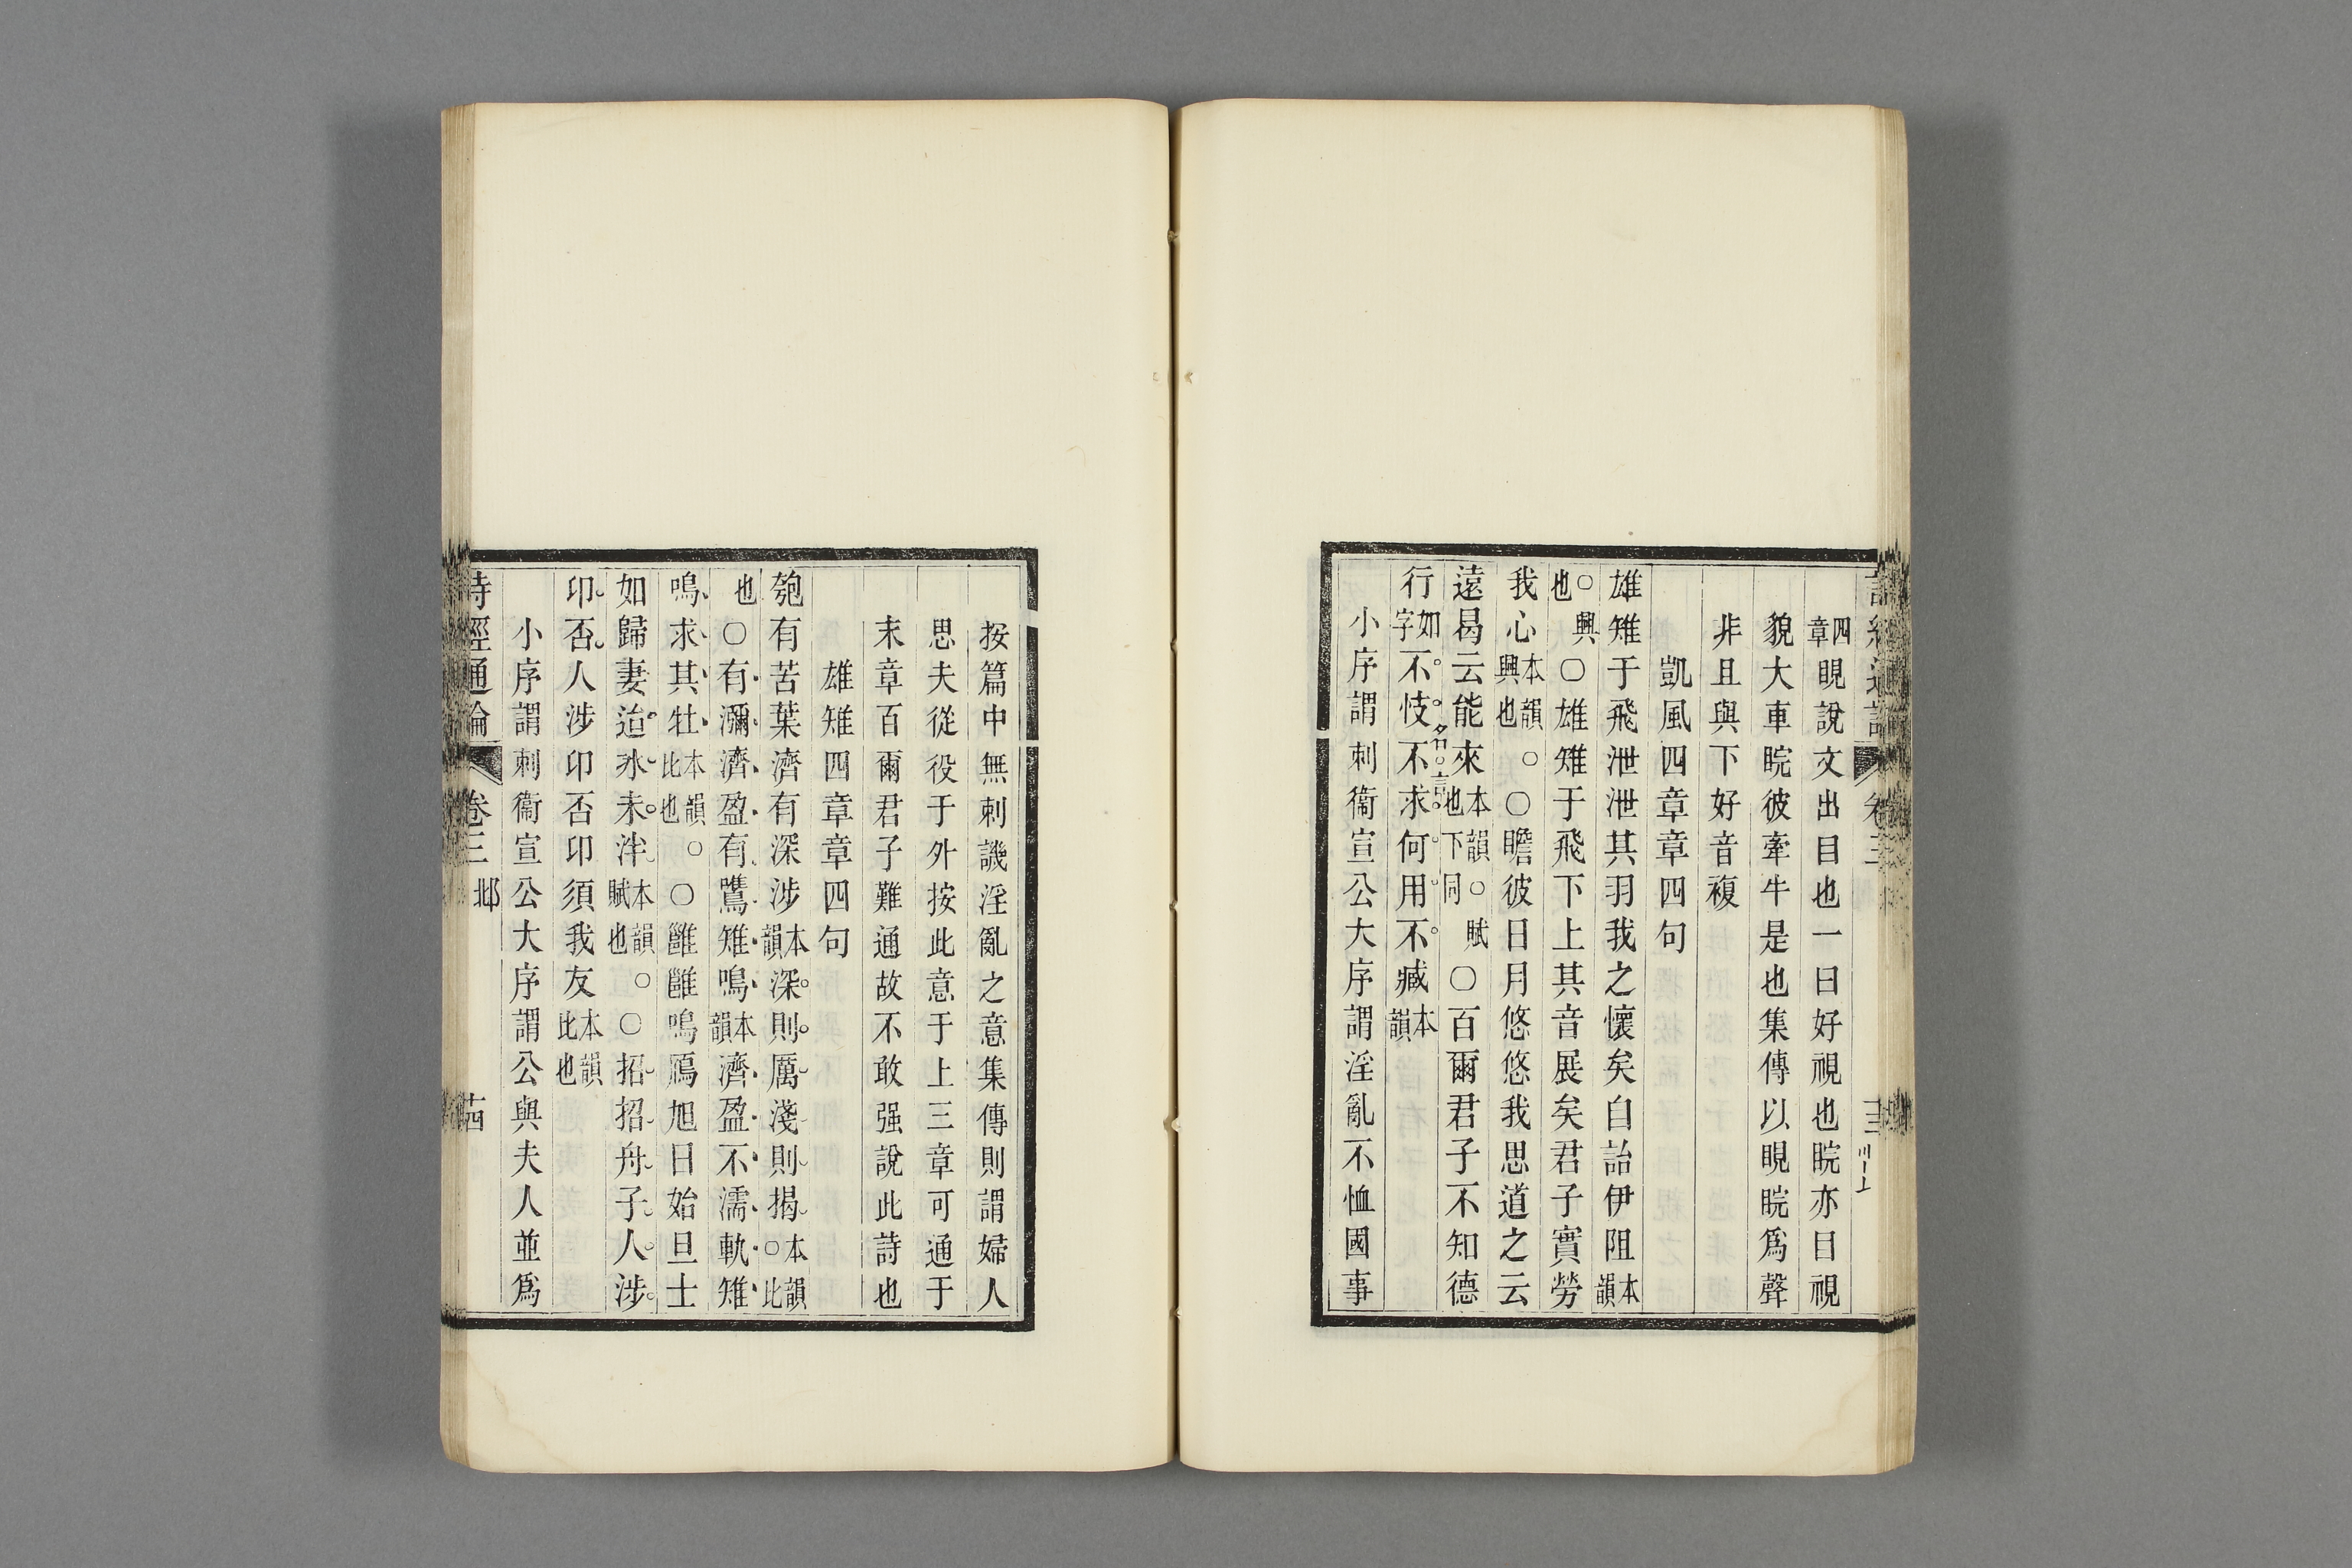 四章睍說文出目也一曰好視也睆亦曰視
貌大車睆彼牽牛是也集傳以睍睆爲聲
非且與下好音複
凱風四章章四句
雄雉于飛泄泄其羽我之懷矣自詒伊阻本韻
○興也○雄雉于飛下上其音展矣君子實勞
我心本韻興也○○瞻彼日月悠悠我思道之云
遠曷云能來本韻也下同○賦○百爾君子不知德
行如字不忮不求何用不臧本韻
小序謂刺衞宣公大序謂淫亂不恤國事
按篇中無刺譏淫亂之意集傳則謂婦人
思夫從役于外按此意于上三章可通于
末章百爾君子難通故不敢强說此詩也
雄雉四章章四句
匏有苦葉濟有深涉本韻深則厲淺則揭本韻○比
也○有瀰濟盈有鷕雉鳴本韻濟盈不濡軌雉
鳴求其牡本韻比也○○雝雝鳴鴈旭日始旦士
如歸妻迨冰未泮本韻賦也○○招招舟子人涉
卬否人涉卬否卬須我友本韻比也
小序謂刺衞宣公大序謂公與夫人並爲
詩經通論 卷三 邶 十四